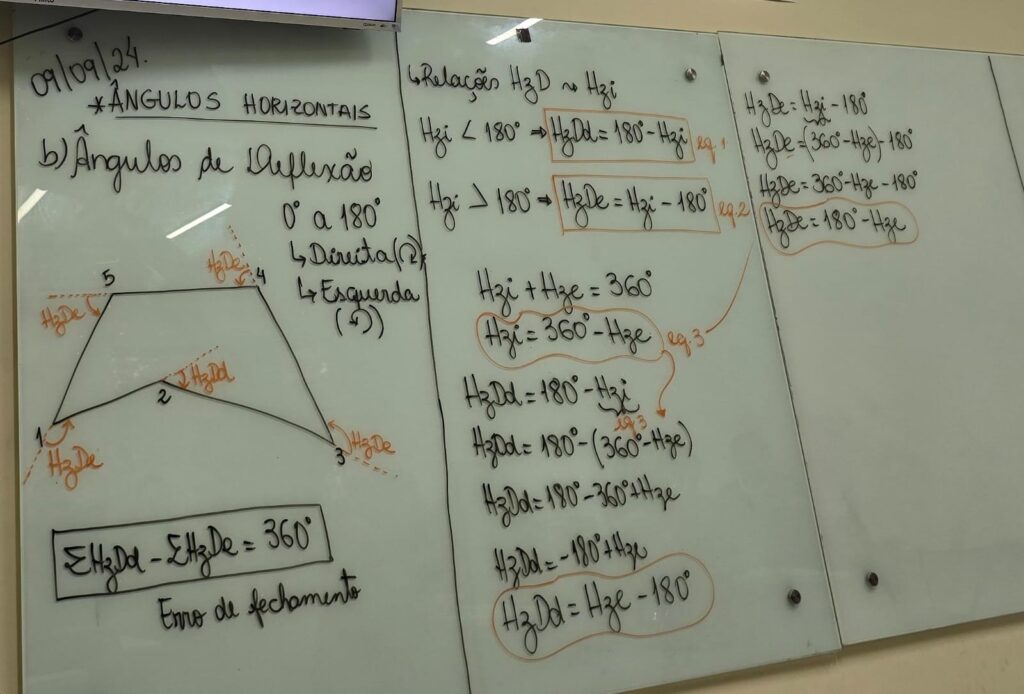 09/09/24.
*ÂNGULOS HORIZONTAIS
b) Ângulos de Deflexão
0° a 180°
↳ Direita (↻)
↳ Esquerda
(↺)
HzDe
4
5
HzDe
HzDd
2
1
HzDe
3
HzDe
ΣHzDd - ΣHzDe = 360°
Erro de fechamento
↳Relações HzD ~ Hzi
Hzi < 180° ⇒ HzDd = 180° - Hzi eq.1
Hzi > 180° ⇒ HzDe = Hzi - 180° eq.2
Hzi + Hze = 360°
Hzi = 360° - Hze eq.3
HzDd = 180° - Hzi
eq.3
HzDd = 180° - (360° - Hze)
HzDd = 180° - 360° + Hze
HzDd = -180° + Hze
HzDd = Hze - 180°
HzDe = Hzi - 180°
HzDe = (360° - Hze) - 180°
HzDe = 360° - Hze - 180°
HzDe = 180° - Hze